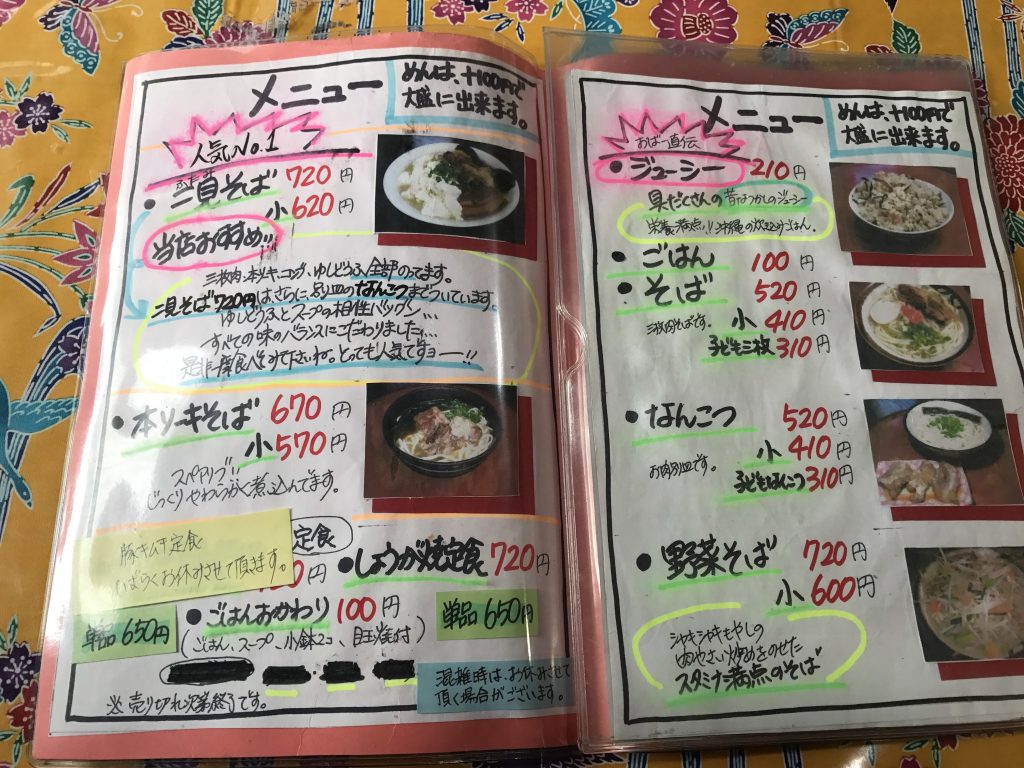 メニュー
めんは、+100円で
大盛に出来ます。
人気No.1
ふたみ
・二見そば 720円
小 620円
当店おすすめ!!
三枚肉、本ソーキ、コンブ、ゆしどうふ、全部のってます。
二見そば720円は、さらに、別皿のなんこつまでついています。
ゆしどうふとスープの相性バツグン、、、
すべての味のバランスにこだわりました、、、
是非一度食べてみて下さいね。とっても人気ですョー!!
・本ソーキそば 670円
小 570円
スペアリブ!!
じっくりやわらかく煮込んでます。
豚キムチ定食
しばらくお休みさせて頂きます。
定食
・しょうが焼定食 720円
・ごはんおかわり 100円
単品 650円
単品 650円
(ごはん、スープ、小鉢2コ、目玉焼き付)
混雑時は、お休みさせて
頂く場合がございます。
※売り切れ次第終了です。
メニュー
めんは、+100円で
大盛に出来ます。
おばー直伝
・ジューシー 210円
具だくさんの昔なつかしのジューシー
栄養満点!!沖縄の炊き込みごはん。
・ごはん 100円
・そば 520円
三枚肉そばです。
小 410円
子ども三枚 310円
・なんこつ 520円
小 410円
お肉別皿です。
子どもなんこつ 310円
・野菜そば 720円
小 600円
シャキシャキもやしの
やさい炒めをのせた
スタミナ満点のそば